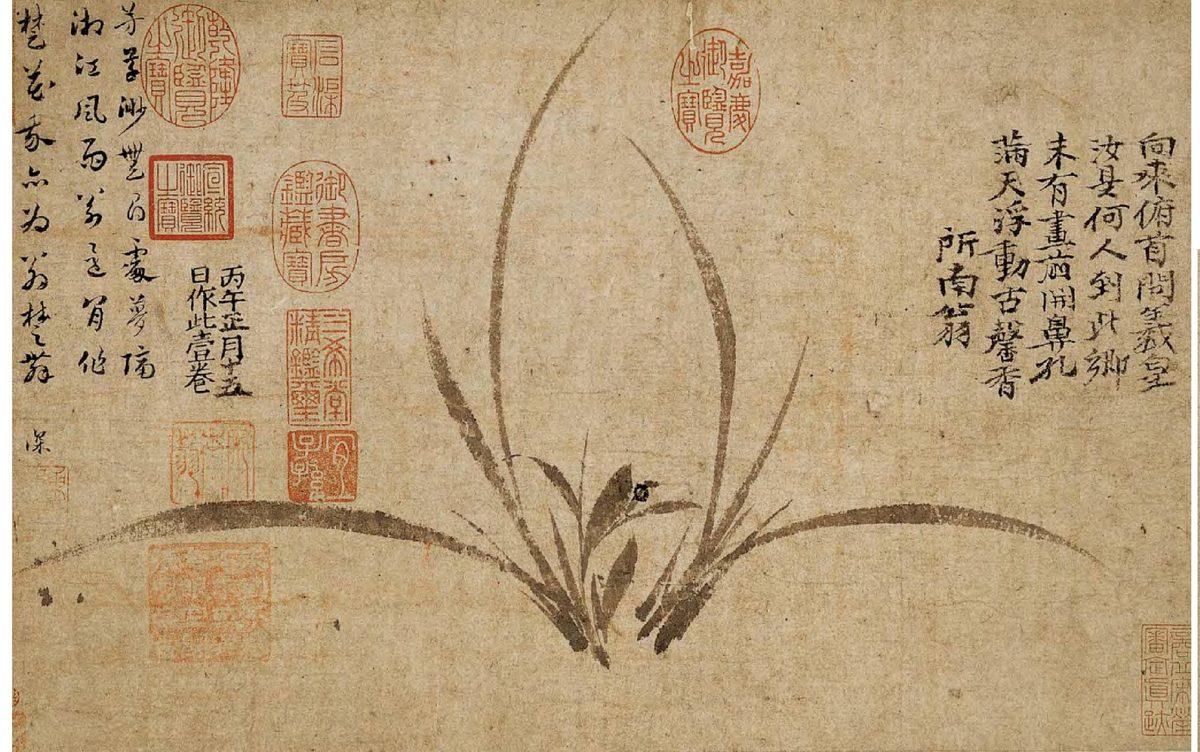 向來俯首問羲皇
汝是何人到此鄉
未有畫前開鼻孔
滿天浮動古馨香
所南翁
嘉慶
御覽
之寶
御書房
鑑藏寶
石渠
寶笈
三希堂
精鑑璽
宜
子孫
丙午正月十五
日作此壹卷
乾隆
御覽
之寶
宣統
御覽
之寶
芳草渺無尋處夢隔
湘江風雨翁還肯作
楚花我亦為翁楚舞
深